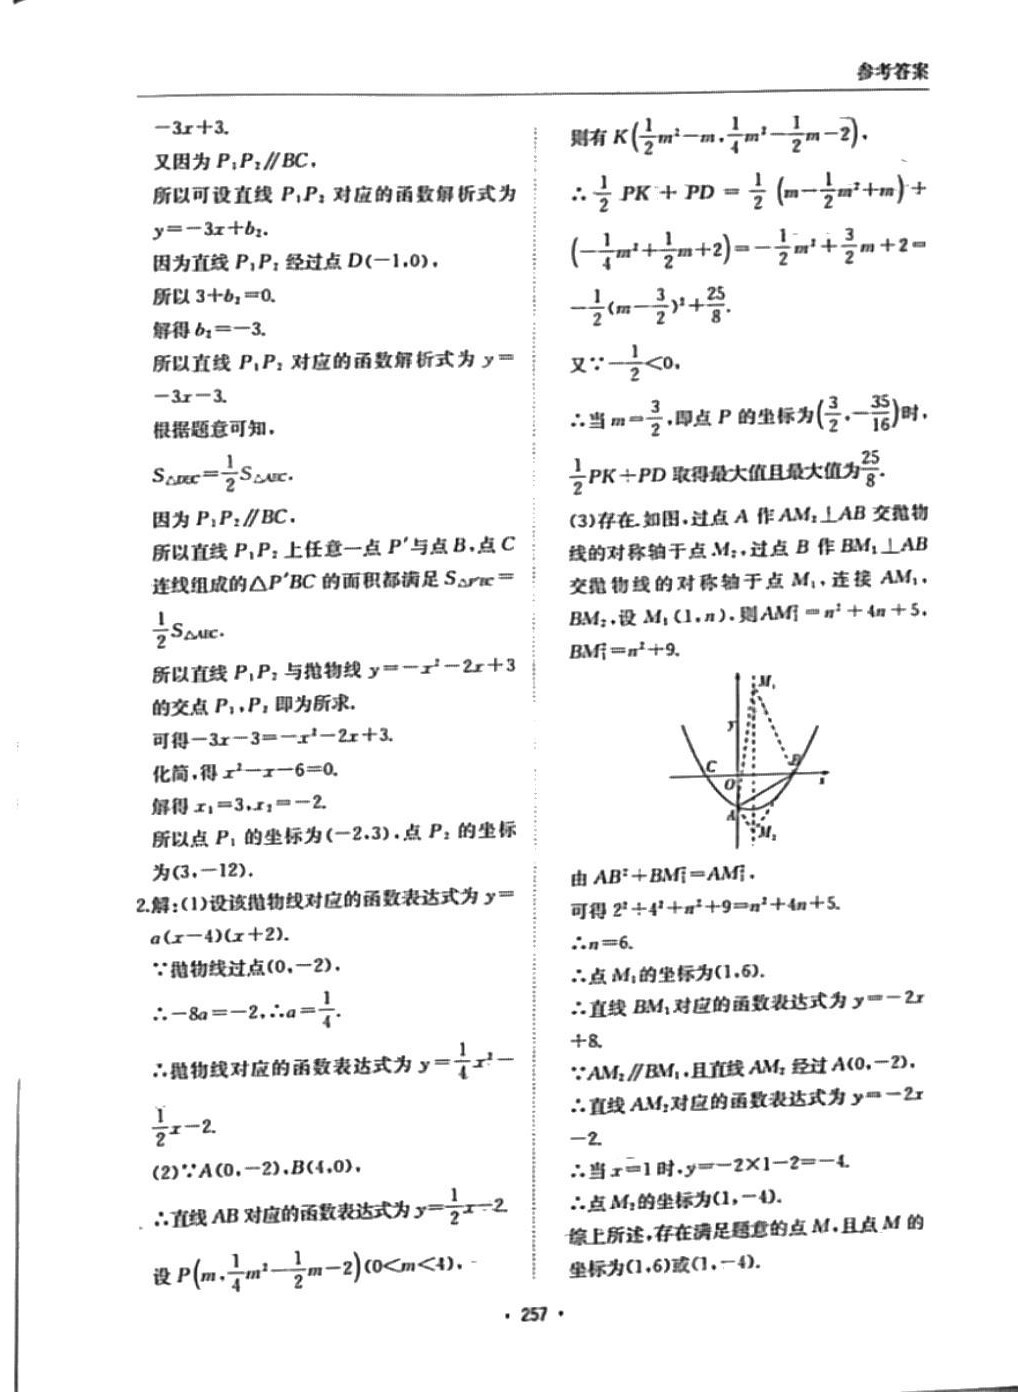 参考答案
-3x+3.
又因为 P₁P₂∥BC,
所以可设直线 P₁P₂ 对应的函数解析式为
y=-3x+b₂.
因为直线 P₁P₂ 经过点 D(-1,0),
所以 3+b₂=0.
解得 b₂=-3.
所以直线 P₁P₂ 对应的函数解析式为 y=
-3x-3.
根据题意可知,
S△DBC=1/2 S△ABC.
因为 P₁P₂∥BC,
所以直线 P₁P₂ 上任意一点 P′与点 B,点 C
连线组成的△P′BC 的面积都满足 S△P′BC=
1/2 S△ABC.
所以直线 P₁P₂ 与抛物线 y=-x²-2x+3
的交点 P₁,P₂ 即为所求.
可得-3x-3=-x²-2x+3.
化简,得 x²-x-6=0.
解得 x₁=3,x₂=-2.
所以点 P₁ 的坐标为(-2,3),点 P₂ 的坐标
为(3,-12).
2.解:(1)设该抛物线对应的函数表达式为 y=
a(x-4)(x+2).
∵抛物线过点(0,-2),
∴-8a=-2,∴a=1/4.
∴抛物线对应的函数表达式为 y=1/4 x²-
1/2 x-2.
(2)∵A(0,-2),B(4,0),
∴直线 AB 对应的函数表达式为 y=1/2 x-2.
设 P(m,1/4 m²-1/2 m-2)(0<m<4),
则有 K(1/2 m²-m,1/4 m²-1/2 m-2).
∴1/2 PK + PD = 1/2 (m-1/2 m²+m)+
(-1/4 m²+1/2 m+2)=-1/2 m²+3/2 m+2=
-1/2 (m-3/2)²+25/8.
又∵-1/2<0,
∴当 m=3/2,即点 P 的坐标为(3/2,-35/16)时,
1/2 PK+PD 取得最大值且最大值为25/8.
(3)存在.如图,过点 A 作 AM₂⊥AB 交抛物
线的对称轴于点 M₂,过点 B 作 BM₁⊥AB
交抛物线的对称轴于点 M₁,连接 AM₁,
BM₂,设 M₁(1,n),则AM₁²=n²+4n+5,
BM₁²=n²+9.
M₁
y
C
B
O
x
A
M₂
由 AB²+BM₁²=AM₁²,
可得 2²+4²+n²+9=n²+4n+5.
∴n=6.
∴点 M₁的坐标为(1,6).
∴直线 BM₁对应的函数表达式为 y=-2x
+8.
∵AM₂∥BM₁,且直线 AM₂ 经过 A(0,-2),
∴直线 AM₂对应的函数表达式为 y=-2x
-2.
∴当 x=1 时,y=-2×1-2=-4.
∴点 M₂的坐标为(1,-4).
综上所述,存在满足题意的点 M,且点 M 的
坐标为(1,6)或(1,-4).
· 257 ·